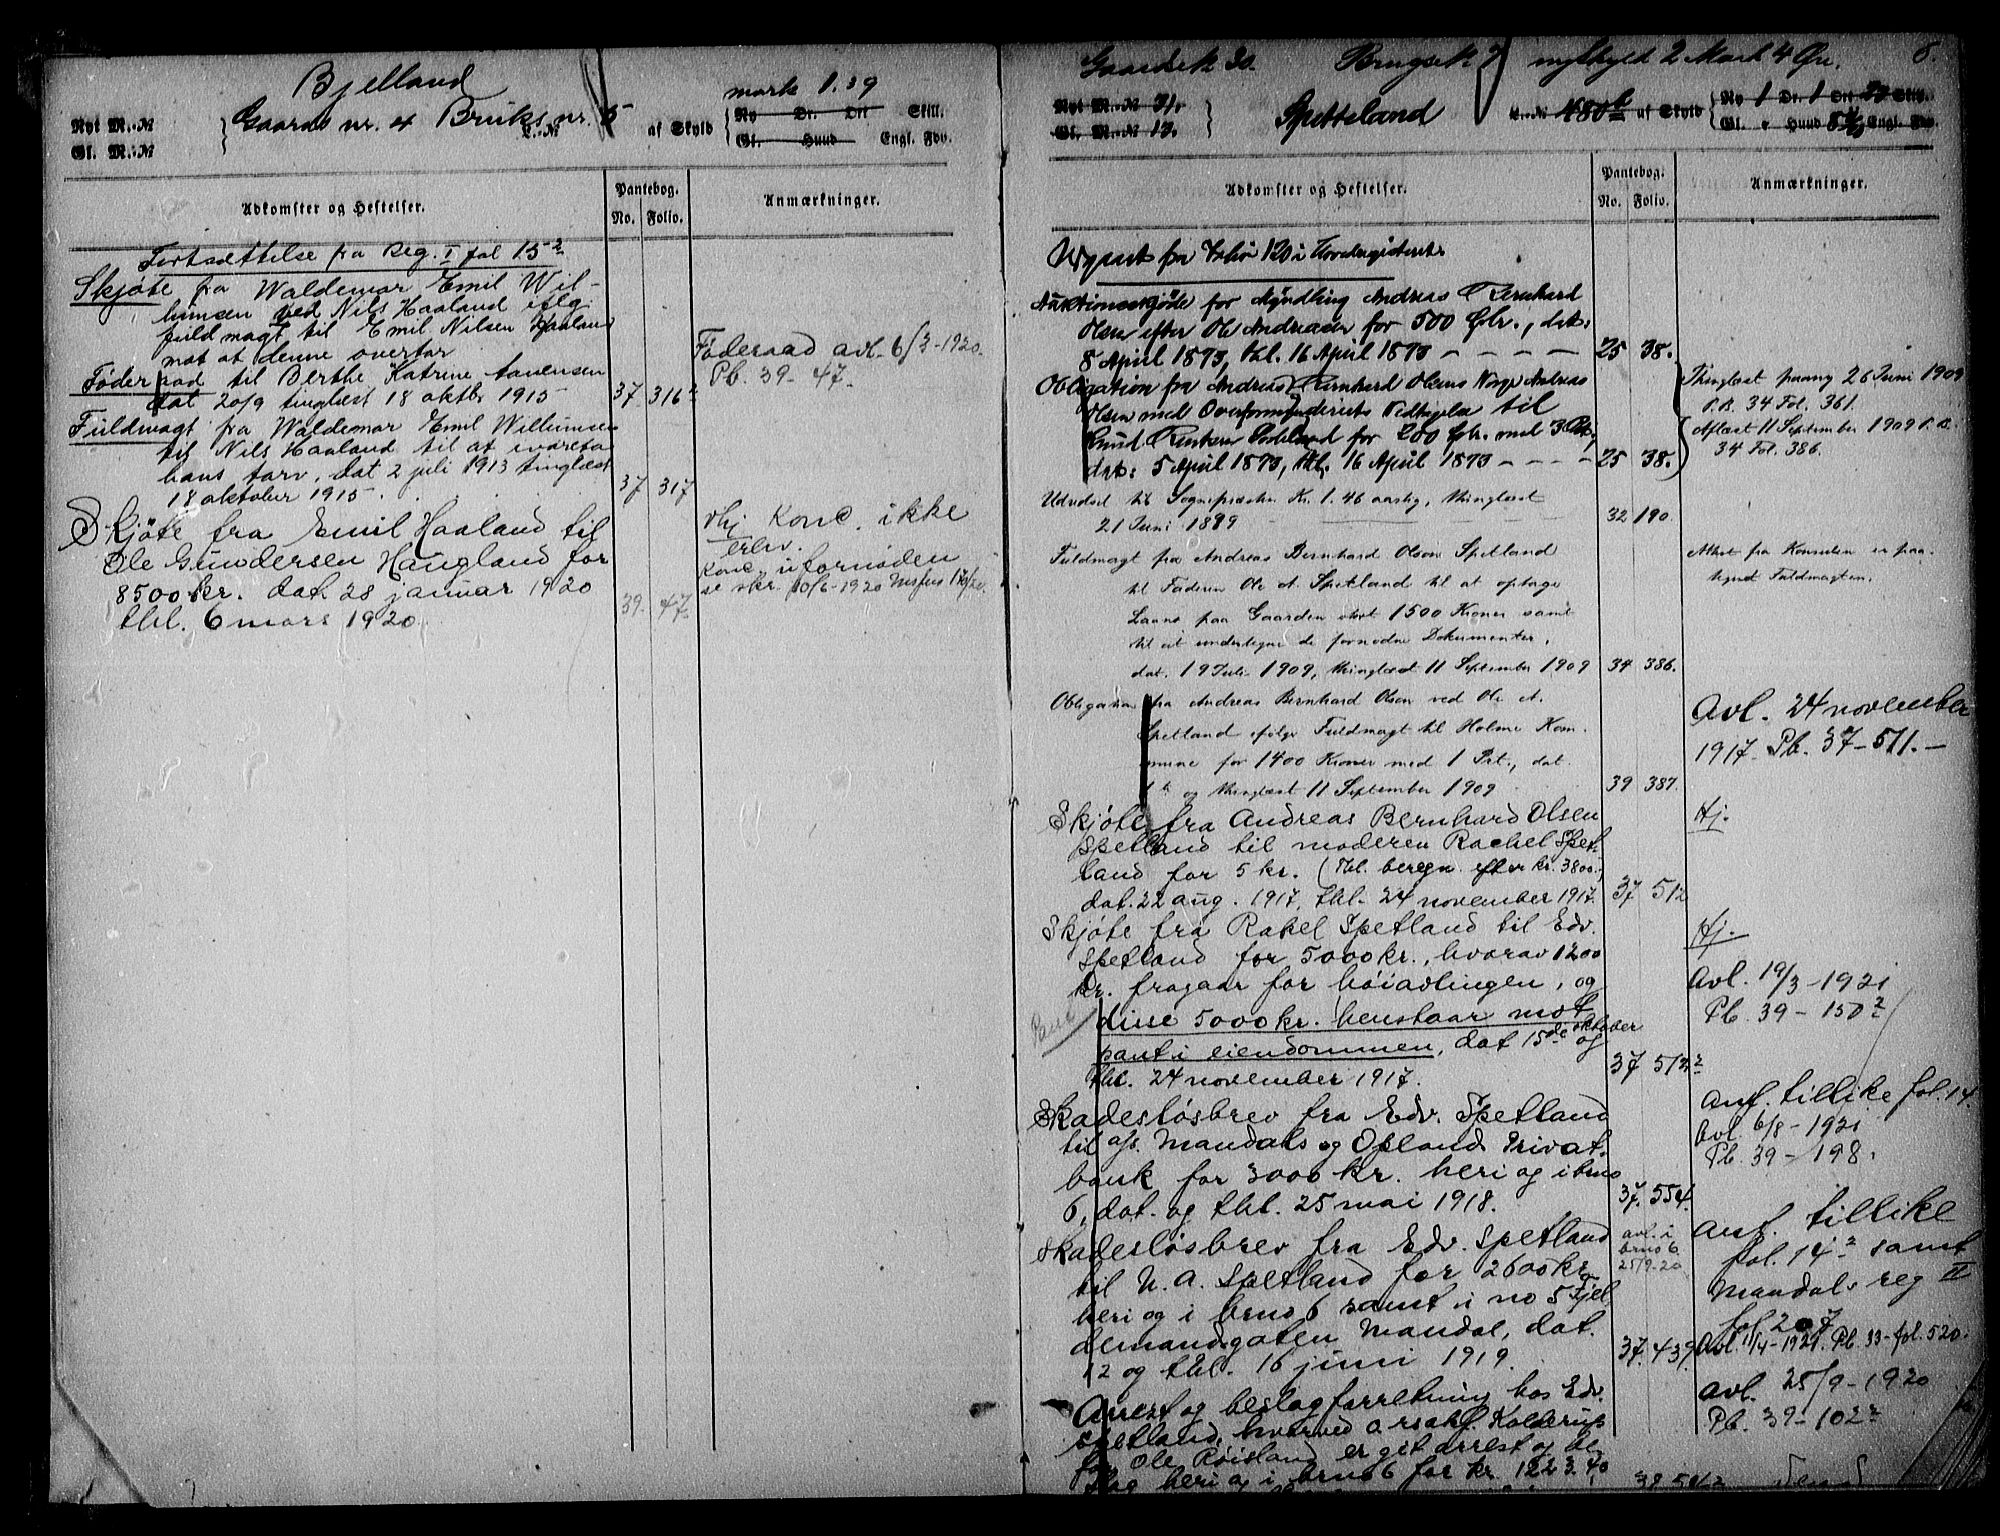 Bjelland
Gaards nr. 4 Bruks nr. 5
mark 1.39
Nyt M.-№
Gl. M.-№
L.-№
af Skyld
Ny Dr. Ort Skill.
Gl. Huud Engl. Fdv.
Adkomster og Heftelser.
Pantebog.
No. Folio.
Anmærkninger.
Fortsættelse fra Reg. I fol 15²
Skjøte fra Waldemar Emil Wil-
humsen ved Nils Haaland iflg.
fuldmagt til Emil Nilsen Haaland
mot at denne overtar
Føderaad til Berthe Katrine
dat 20/9 tinglæst 18 oktbr 1915 37 316²
Føderaad avl. 6/3-1920.
Pb. 39-47.
Fuldmagt fra Waldemar Emil Willumsen
til Nils Haaland til at ivareta
hans tarv, dat 2 juli 1913 tinglæst
18 oktober 1915. 37 317
Skjøte fra Emil Haaland til
Ole Gundersen Haugland for
8500 kr. dat 28 januar 1920
tbl. 6 mars 1920. 39. 47.
Hj Konc. ikke
erhv.
Konc. ufornøden
se skr. 10/6-1920
Gaardsk 30. Brugsk 7 nyskyld 2 Mark 4 Øre. 8.
Nyt M.-№ 31.
Gl. M.-№ 13.
Spetteland
L.-№ 480b af Skyld
Ny 1 Dr. 1 Ort 23 Skill.
Gl. Huud Engl. Fdv.
Adkomster og Heftelser.
Pantebog.
No. Folio.
Anmærkninger.
fra Folio 120 i Hovedregisteret.
Auktionsskjøde for Myndling Andreas Bernhard
Olsen efter Ole Andreasen for 500 Spdlr., dat.
8 April 1873, thl. 16 April 1873 25 38.
Obligation fra Andreas Bernhard Olsens Værge Andreas
Olsen med Overformynderiets Vedtagelse til
Knud for 200 Spdlr. med
dat. 5 April 1873, thl. 16 April 1873 25 38.
Thinglæst paany 26 Juni 1909
P.B. 34 Fol. 361.
Aflæst 11 September 1909 P.B.
34 Fol. 386.
Udvidsel til Sognepræsten Kr. 1.46 aarlig, thinglæst
21 Juni 1899 32 190.
Fuldmagt fra Andreas Bernhard Olsen Spetland
til Faderen Ole A. Spetland til at optage
Laans paa Gaarden stort 1500 Kroner samt
til at undertegne de fornødne Dokumenter,
dat. 19 Juli 1909, thinglæst 11 September 1909 34 386.
Attest fra Konsulen er paa-
tegnet Fuldmagten.
Obligation fra Andreas Bernhard Olsen ved Ole A.
Spetland ifølge Fuldmagt til Holme Kom-
mune for 1400 Kroner med 1 Prt., dat.
og thinglæst 11 September 1909 39 387.
Avl. 24 november
1917. Pb. 37-511.-
Skjøte fra Andreas Bernhard Olsen
Spetland til moderen Rachel Spet-
land for 5 kr. (Tbl. beregn. efter kr. 3800.
dat. 22 aug. 1917, tbl. 24 november 1917. 37 512
Hj.
Skjøte fra Rakel Spetland til Edv.
Spetland for 5000 kr., hvorav 1200
kr. fragaar for høiavlingen, og
disse 5000 kr. henstaar mot
pant i eiendommen, dat 15de oktober og
tbl. 24 november 1917. 37 512²
Pant
Hj.
Avl. 19/3-1921
Pb. 39-150²
Skadesløsbrev fra Edv. Spetland
til a/s. Mandals og Opland Privat-
bank for 3000 kr. heri og i brno
6, dat. og tbl. 25 mai 1918. 37. 554.
Anf. tillike fol. 14.
Avl. 6/8-1921
Pb. 39-198.
Skadesløsbrev fra Edv. Spetland
til N. A. Spetland for 2600 kr.
heri og i brno 6 samt i no 5 Fjel-
demandsgaten Mandal, dat.
12 og tbl. 16 juni 1919. 37. 439
avl. i
brno 6
25/9-20
Anf. tillike
fol. 14² samt
Mandals reg II
fol 207
Avl. 11/4-1921. Pb. 33-fol. 520.
Arrest og beslagforretning hos Edv.
Spetland, hvorved o.r.sakf. Kolderup
for Ole Røisland er git arrest og be-
slag heri og i brno 6 for kr. 1223.40
Avl. 25/9-1920
Pb. 39-102²